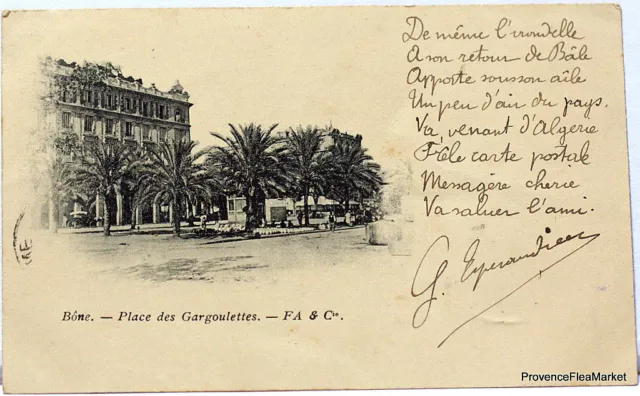 De même l'irondelle
A son retour de Bâle
Apporte sousson aîle
Un peu d'air du pays.
Va, venant d'Algérie
Fèle carte postal
Messagère cherie
Va saluer l'ami.
G.
Bône. — Place des Gargoulettes. — FA & Cie.
ProvenceFleaMarket